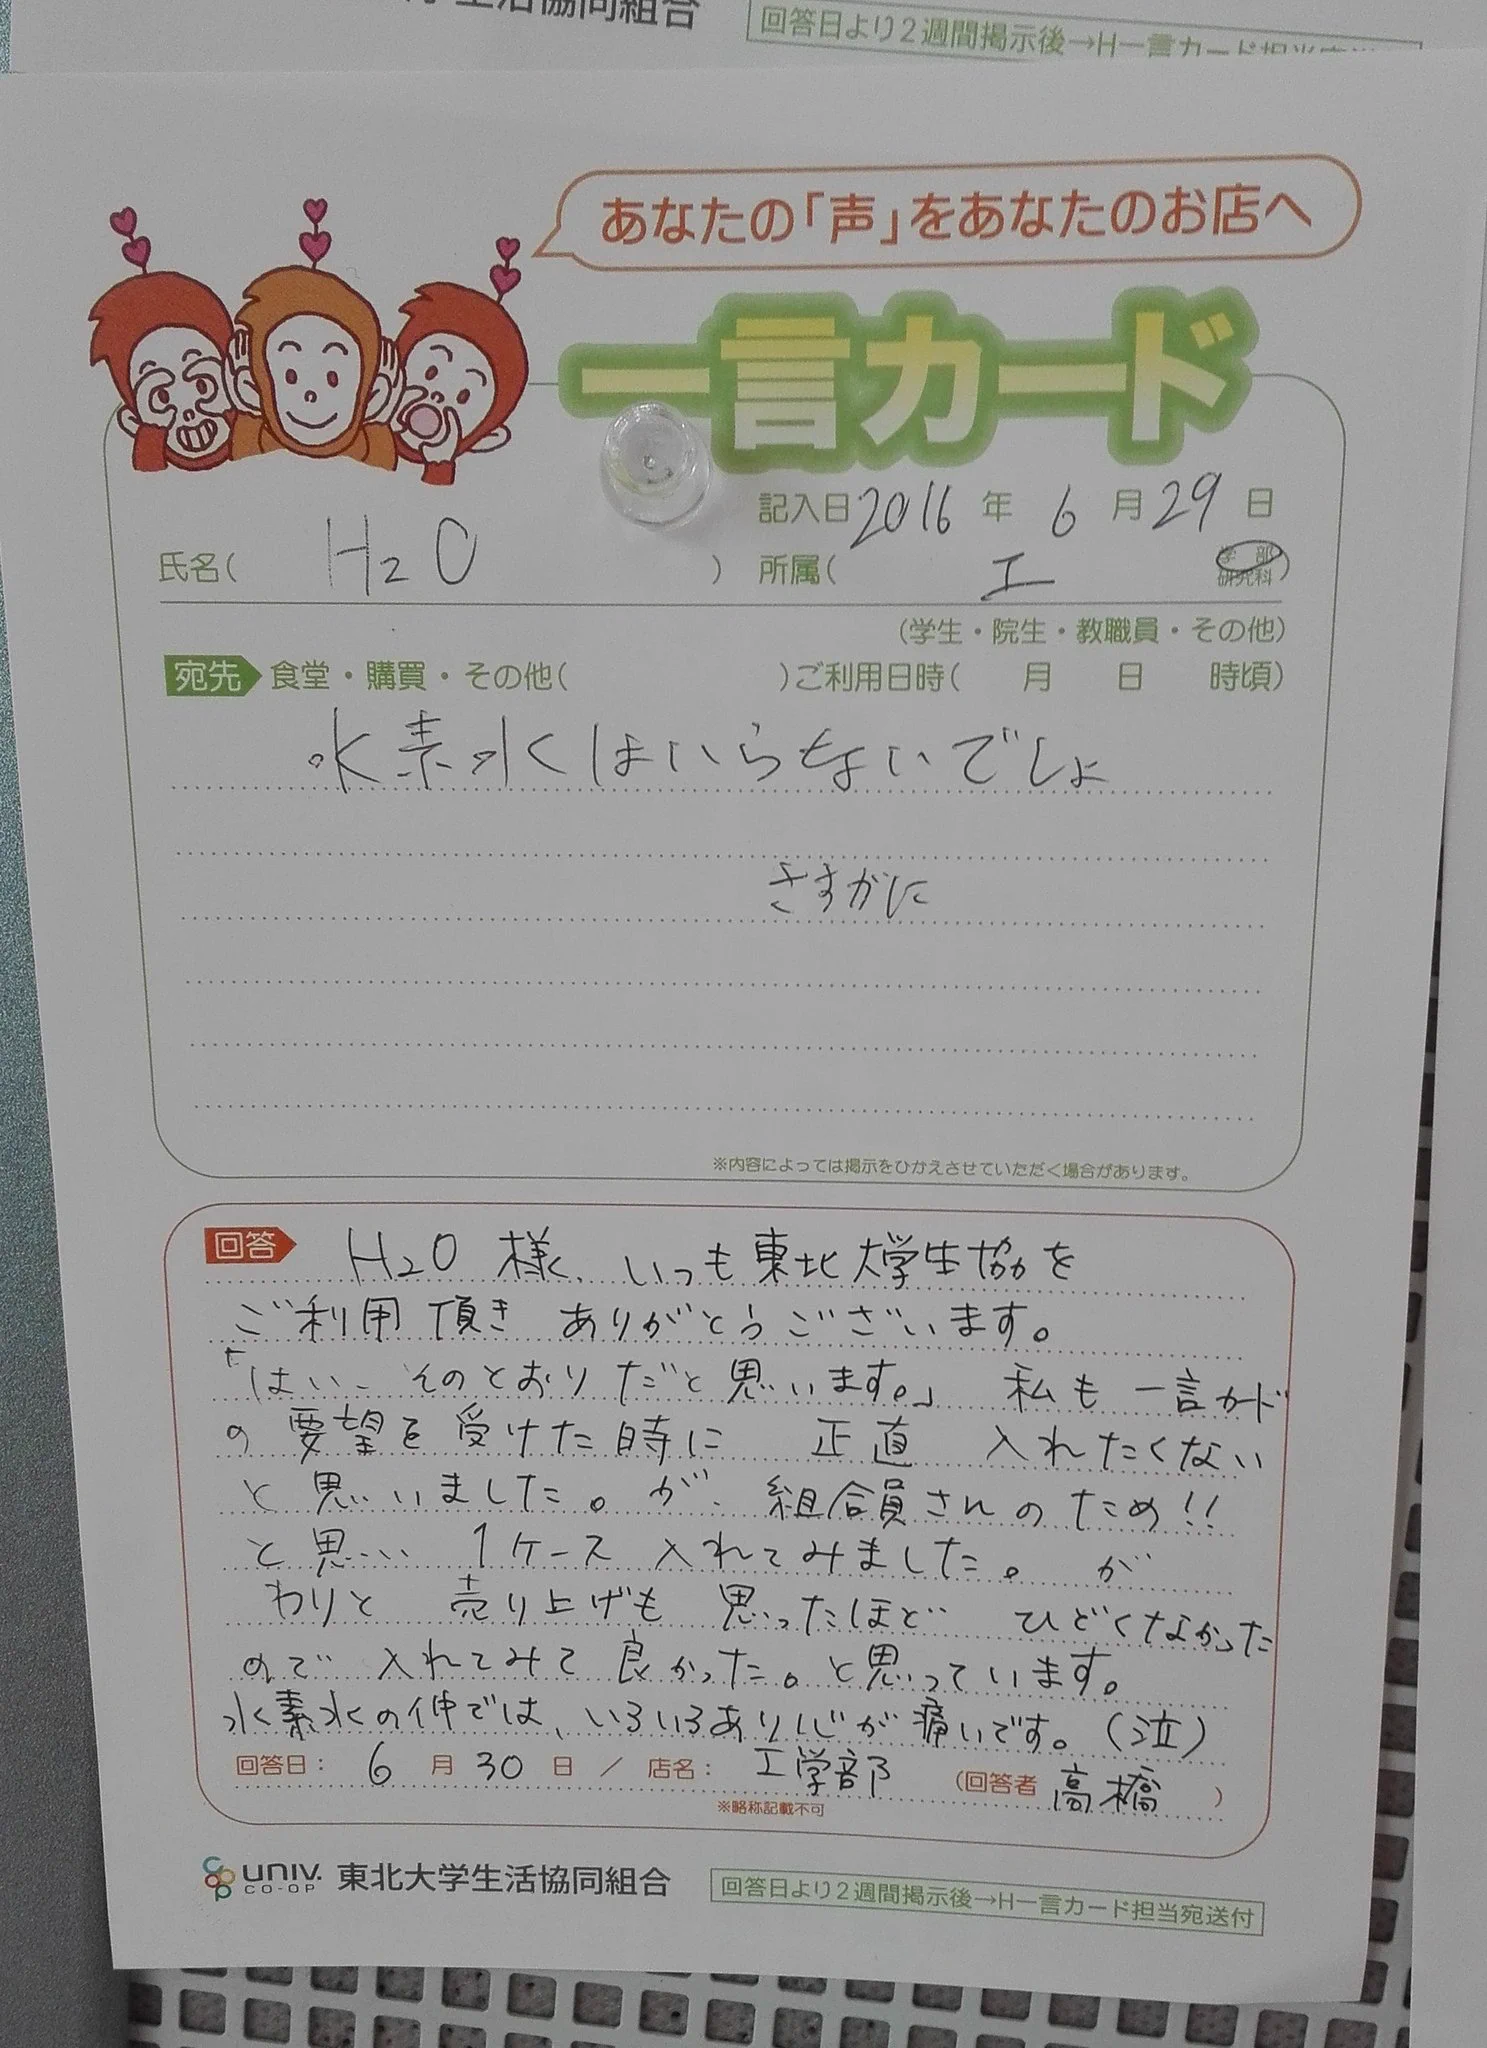 生活協同組合
回答日より2週間掲示後→H一言カード担当宛送
あなたの「声」をあなたのお店へ
一言カード
記入日2016年6月29日
氏名( H2O ) 所属( 工 学部 研究科)
(学生・院生・教職員・その他)
宛先 食堂・購買・その他( )ご利用日時( 月 日 時頃)
水素水はいらないでしょ
さすがに
※内容によっては掲示をひかえさせていただく場合があります。
回答 H2O 様、いつも東北大学生協を
ご利用 頂き ありがとうございます。
「はい、そのとおりだと思います。」 私も 一言カード
の 要望を 受けた時に 正直 入れたくない
と思いました。が、組合員さんのため!!
と思い 1ケース 入れてみました。 が
わりと 売り上げも 思ったほど ひどくなかった
ので 入れてみて 良かった。と思っています。
水素水の件では、いろいろあり心が痛いです。(泣)
回答日: 6 月 30 日 / 店名: 工学部 (回答者 高橋 )
※略称記載不可
UNIV. CO-OP 東北大学生活協同組合
回答日より2週間掲示後→H一言カード担当宛送付